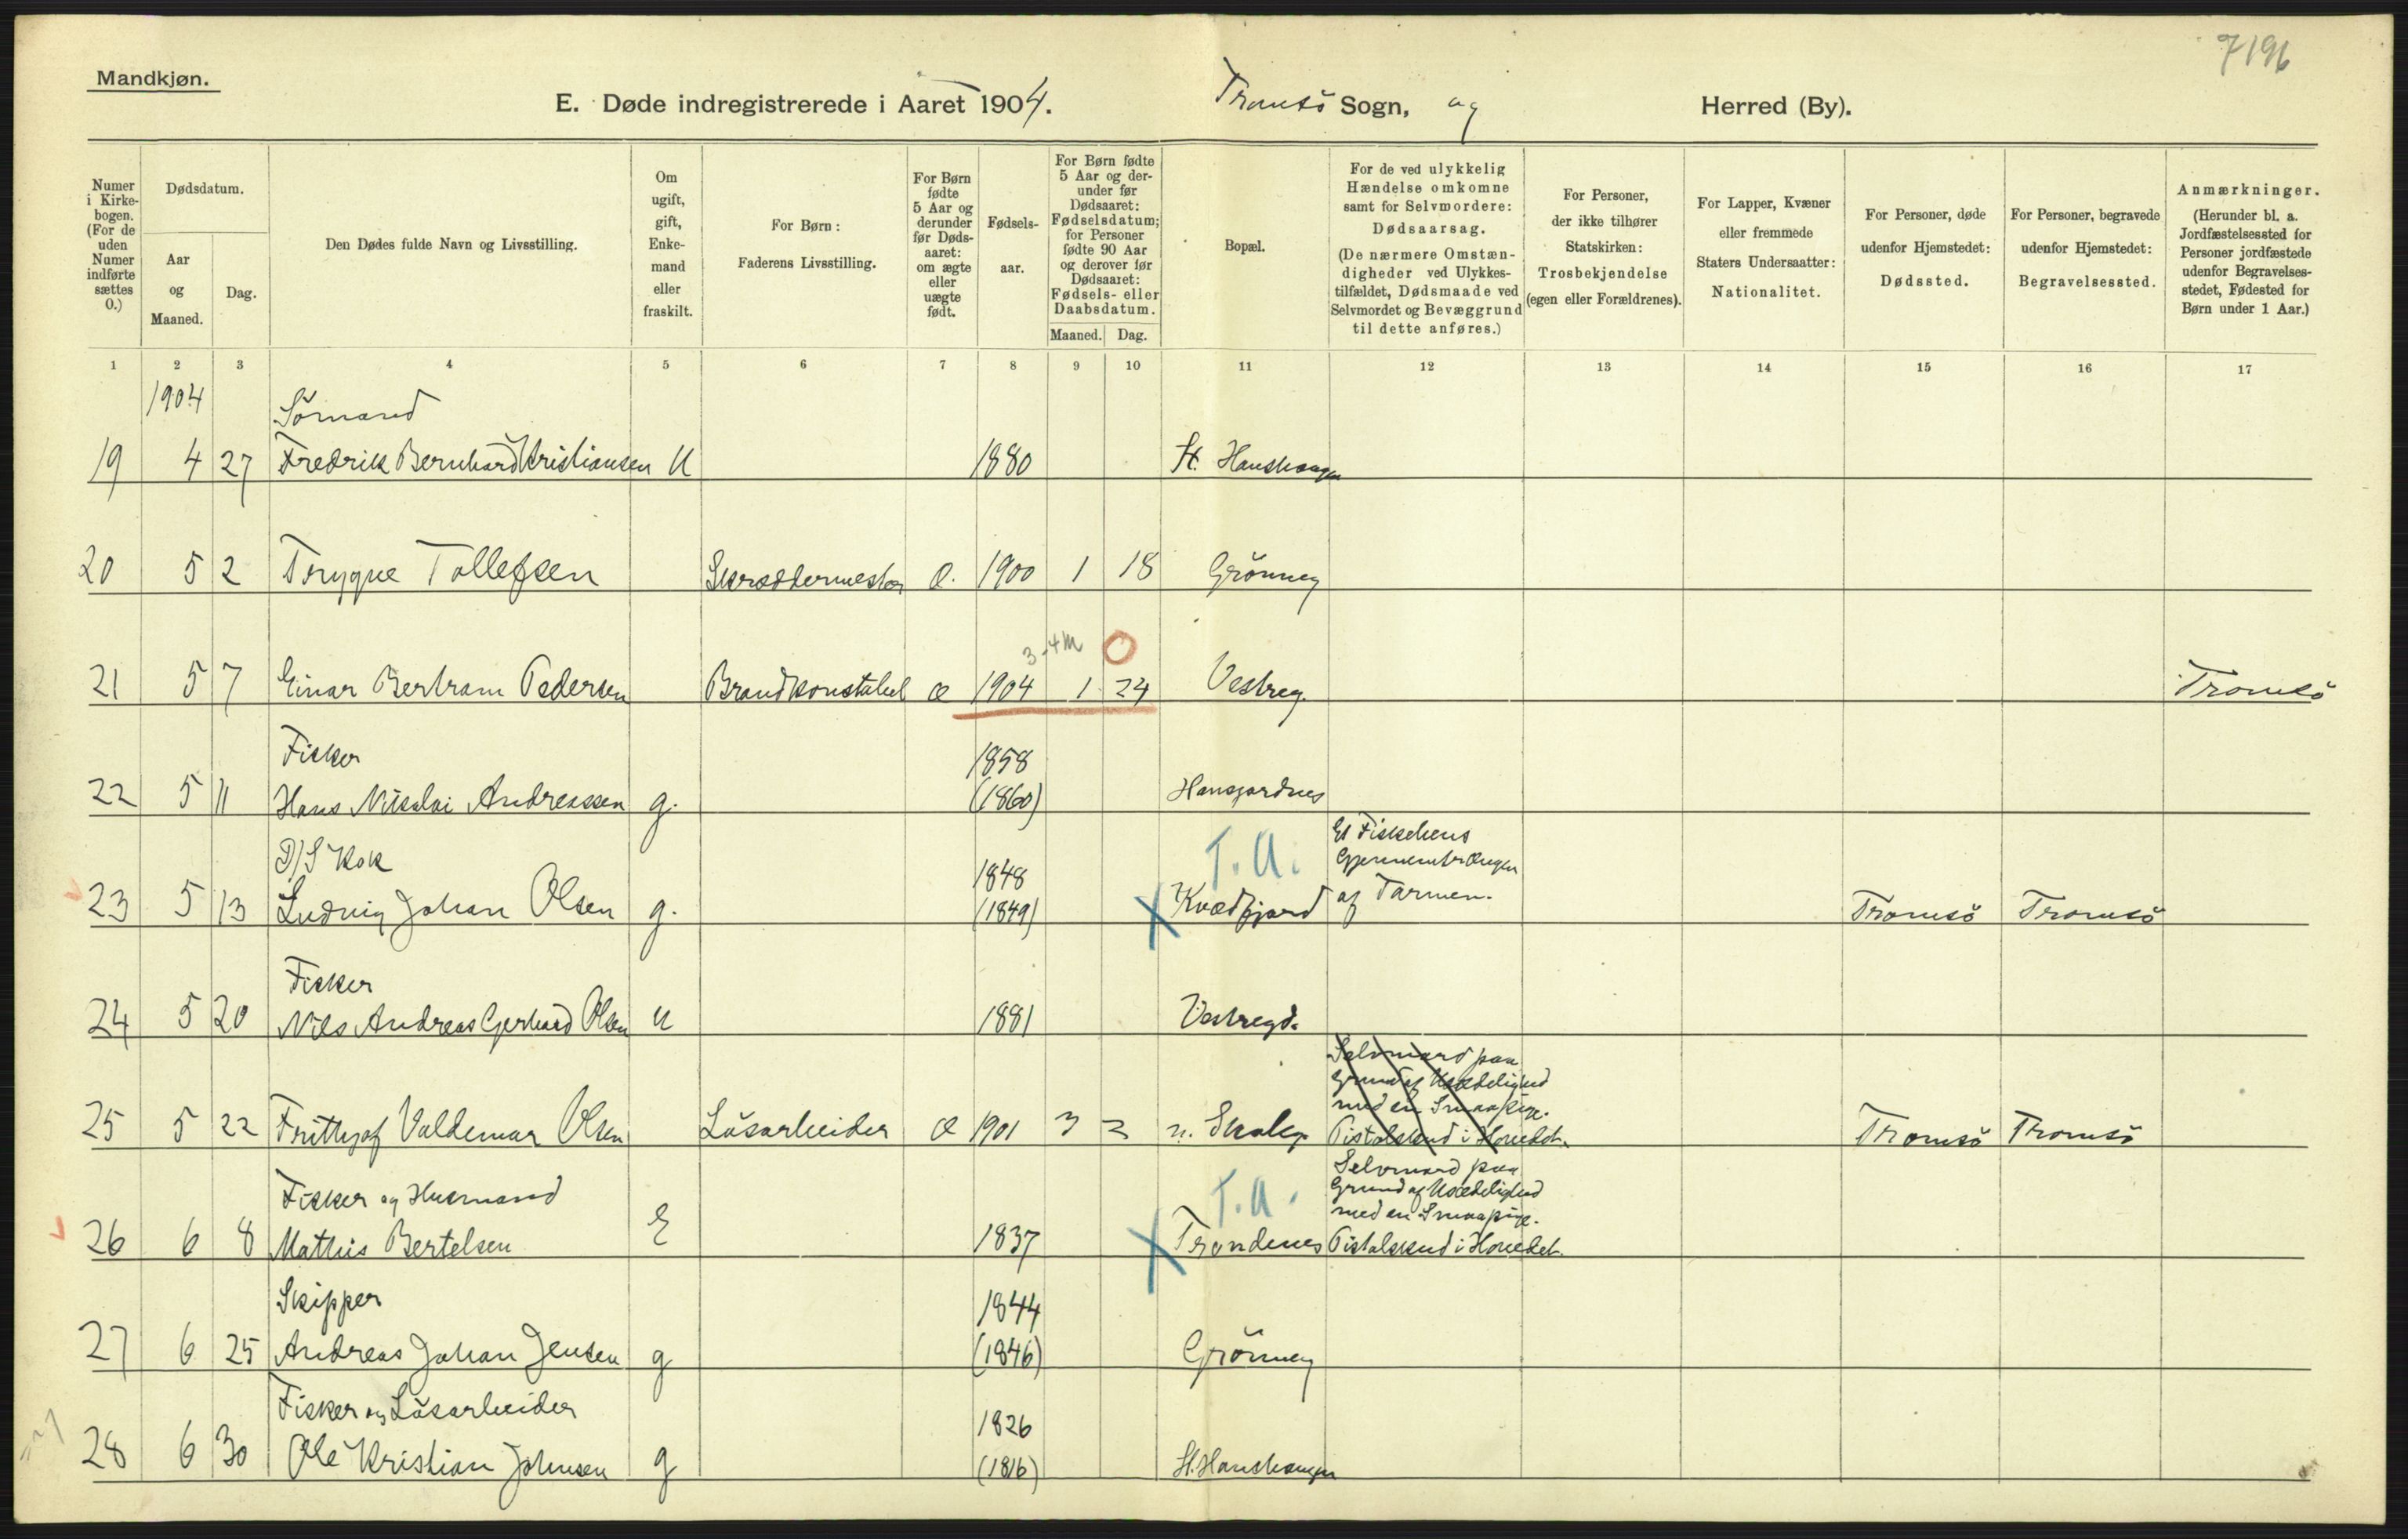 7196
Mandkjøn.
E. Døde indregistrerede i Aaret 1904. Tromsö Sogn, og Herred (By).
Numer i Kirkebogen. (For de uden Numer indførte sættes 0.)
Dødsdatum.
Aar og Maaned.
Dag.
Den Dødes fulde Navn og Livsstilling.
Om ugift, gift, Enkemand eller fraskilt.
For Børn: Faderens Livsstilling.
For Børn fødte 5 Aar og derunder før Dødsaaret: om ægte eller uægte født.
Fødselsaar.
For Børn fødte 5 Aar og derunder før Dødsaaret: Fødselsdatum; for Personer fødte 90 Aar og derover før Dødsaaret: Fødsels- eller Daabsdatum.
Maaned. Dag.
Bopæl.
For de ved ulykkelig Hændelse omkomne samt for Selvmordere: Dødsaarsag. (De nærmere Omstændigheder ved Ulykkestilfældet, Dødsmaade ved Selvmordet og Bevæggrund til dette anføres.)
For Personer, der ikke tilhører Statskirken: Trosbekjendelse (egen eller Forældrenes).
For Lapper, Kvæner eller fremmede Staters Undersaatter: Nationalitet.
For Personer, døde udenfor Hjemstedet: Dødssted.
For Personer, begravede udenfor Hjemstedet: Begravelsessted.
Anmærkninger. (Herunder bl. a. Jordfæstelsessted for Personer jordfæstede udenfor Begravelsesstedet, Fødested for Børn under 1 Aar.)
1 2 3 4 5 6 7 8 9 10 11 12 13 14 15 16 17
1904
Sömand
19 4 27 Fredrik Bernhard Kristiansen U 1880 St. Hanshaugen
20 5 2 Trygve Tollefsen Skræddermester Æ. 1900 1 18 Grönneg
3-4 M O
21 5 7 Einar Bertram Pedersen Brandkonstabel Æ 1904 1 24 Vestreg. Tromsö
Fisker 1858
22 5 11 Hans Nikolai Andreassen g. (1860) Hansjordnes
D/S Kok 1848 T.A. Et Fiskebens
Gjennemtrængen
23 5 13 Ludvig Johan Olsen g. (1849) X Kvædfjord af Tarmen. Tromsö Tromsö
Fisker
24 5 20 Nils Andreas Gerhard Olsen U 1881 Vestregd.
Selvmord paa
Grund af Usædelighed
med en Smaapige.
25 5 22 Frithjof Valdemar Olsen Lösarbeider Æ 1901 3 2 n. Skoleg. Pistolskud i Hovedet. Tromsö Tromsö
Fisker og Husmand T.A. Selvmord paa
Grund af Usædelighed
med en Smaapige.
26 6 8 Mathis Bertelsen E 1837 X Trondenes Pistolskud i Hovedet.
Skipper 1844
27 6 25 Andreas Johan Jensen g (1846) Grönneg
Fisker og Lösarbeider 1826
28 6 30 Ole Kristian Johnsen g (1816) St. Hanshaugen